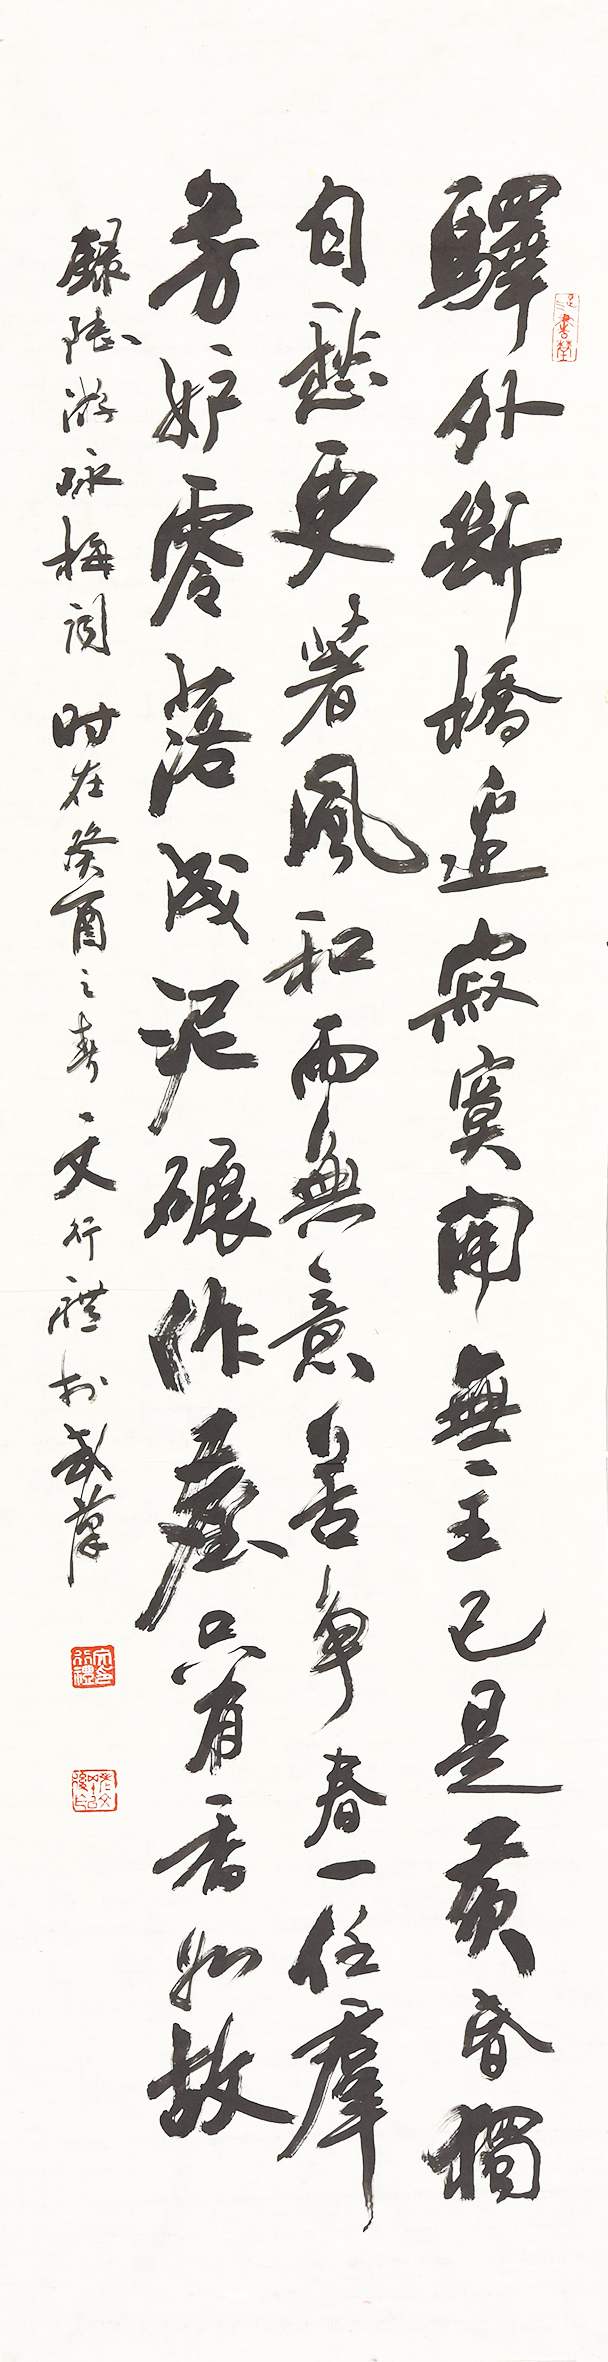 驛外斷橋邊寂寞開無主已是黃昏獨
自愁更著風和雨無意苦爭春一任羣
芳妒零落成泥碾作塵只有香如故
錄陸游咏梅詞 时在癸酉之春 文行禮於武